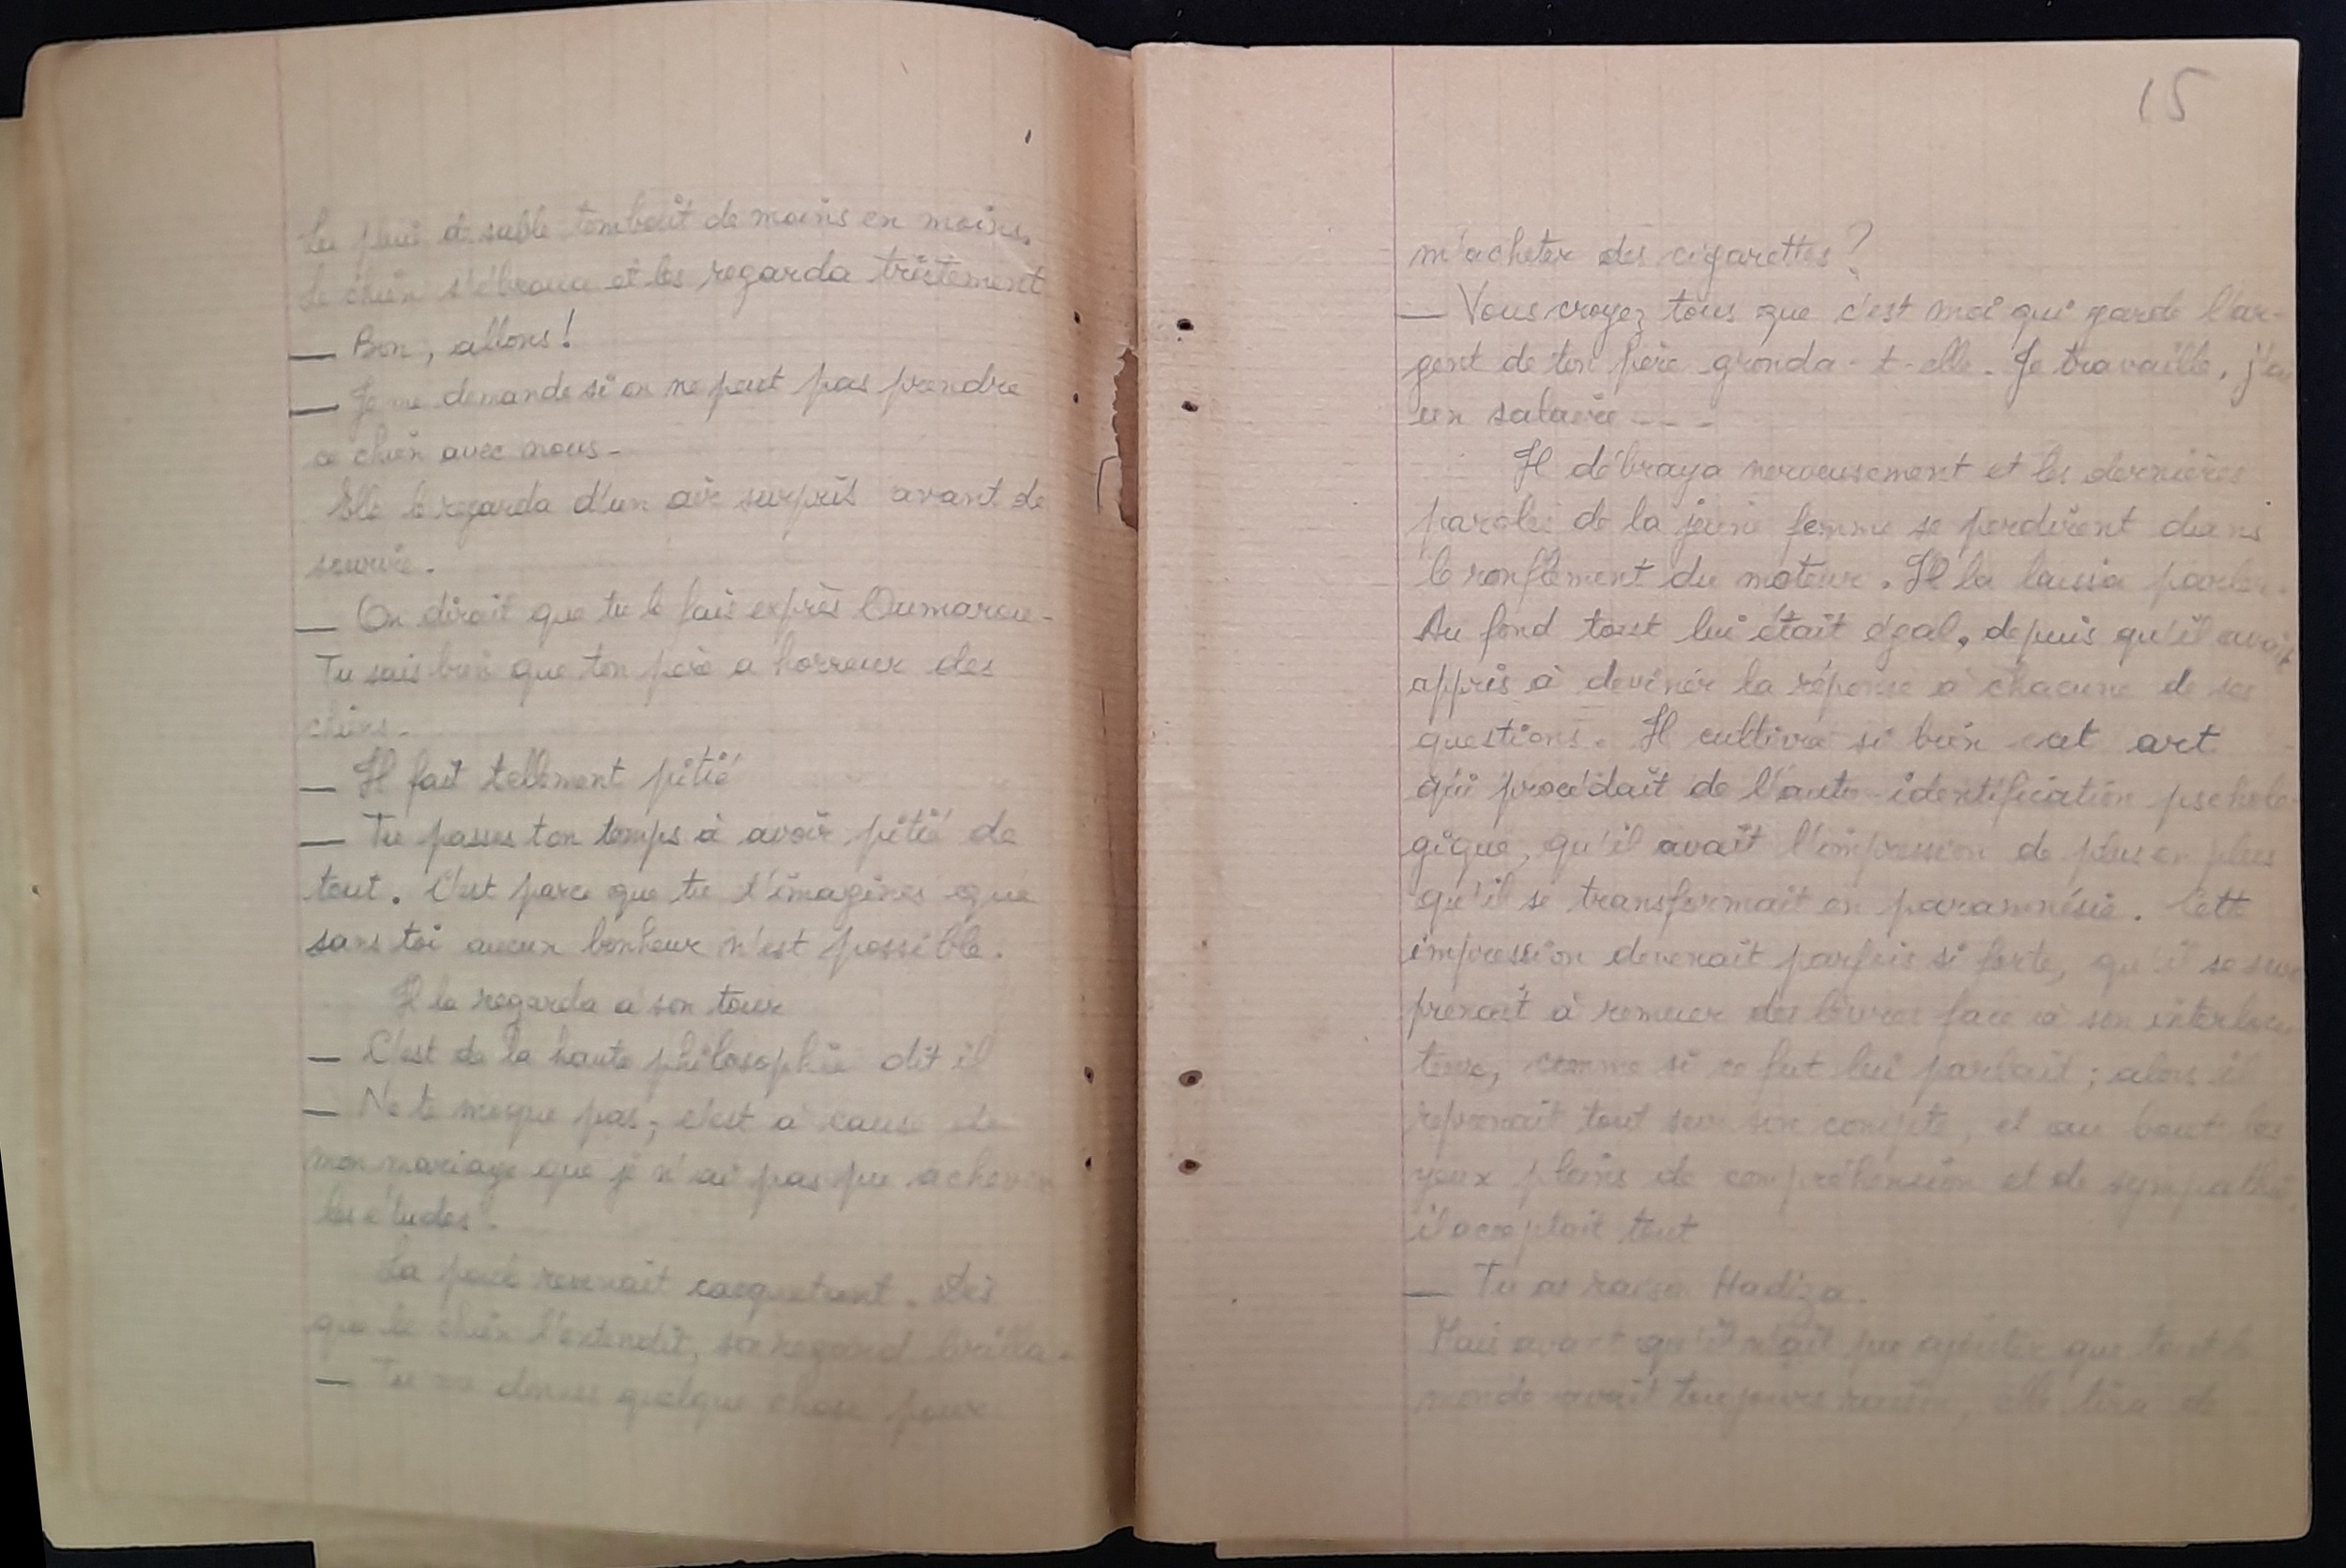 La pluie de sable tombait de moins en moins.
Le chien s'ébroua et les regarda tristement
— Bon, allons !
— Je me demande si on ne peut pas prendre
ce chien avec nous -
Elle le regarda d'un air surpris avant de
sourire.
— On dirait que tu le fais exprès Oumarou -
Tu sais bien que ton père a horreur des
chiens -
— Il fait tellement pitié
— Tu passes ton temps à avoir pitié de
tout. C'est parce que tu t'imagines que
sans toi aucun bonheur n'est possible.
Il la regarda à son tour
— C'est de la haute philosophie dit il
— Ne te moque pas ; c'est à cause de
mon mariage que je n'ai pas pu achever
les études -
La poule revenait caquetant. Dès
que le chien l'entendit, son regard brilla -
— Tu me donnes quelque chose pour
15
m'acheter des cigarettes ?
— Vous croyez tous que c'est moi qui garde l'ar-
gent de ton père gronda-t-elle. Je travaille, j'ai
un salaire - - -
Il débraya nerveusement et les dernières
paroles de la jeune femme se perdirent dans
le ronflement du moteur. Il la laissa parler.
Au fond tout lui était égal, depuis qu'il avait
appris à deviner la réponse à chacune de ses
questions. Il cultiva si bien cet art
qui procédait de l'auto-identification pscholo-
gique, qu'il avait l'impression de plus en plus
qu'il se transformait en paramnésie. Cette
impression devenait parfois si forte, qu'il se sur
prenait à remuer des lèvres face à son interlocu
teur, comme si ce fut lui parlait ; alors il
reprenait tout sur son compte, et au bout les
yeux pleins de compréhension et de sympathie,
il acceptait tout
— Tu as raison Hadiza.
Mais avant qu'il n'ait pu ajouter que tout le
monde avait toujours raison, elle tira de